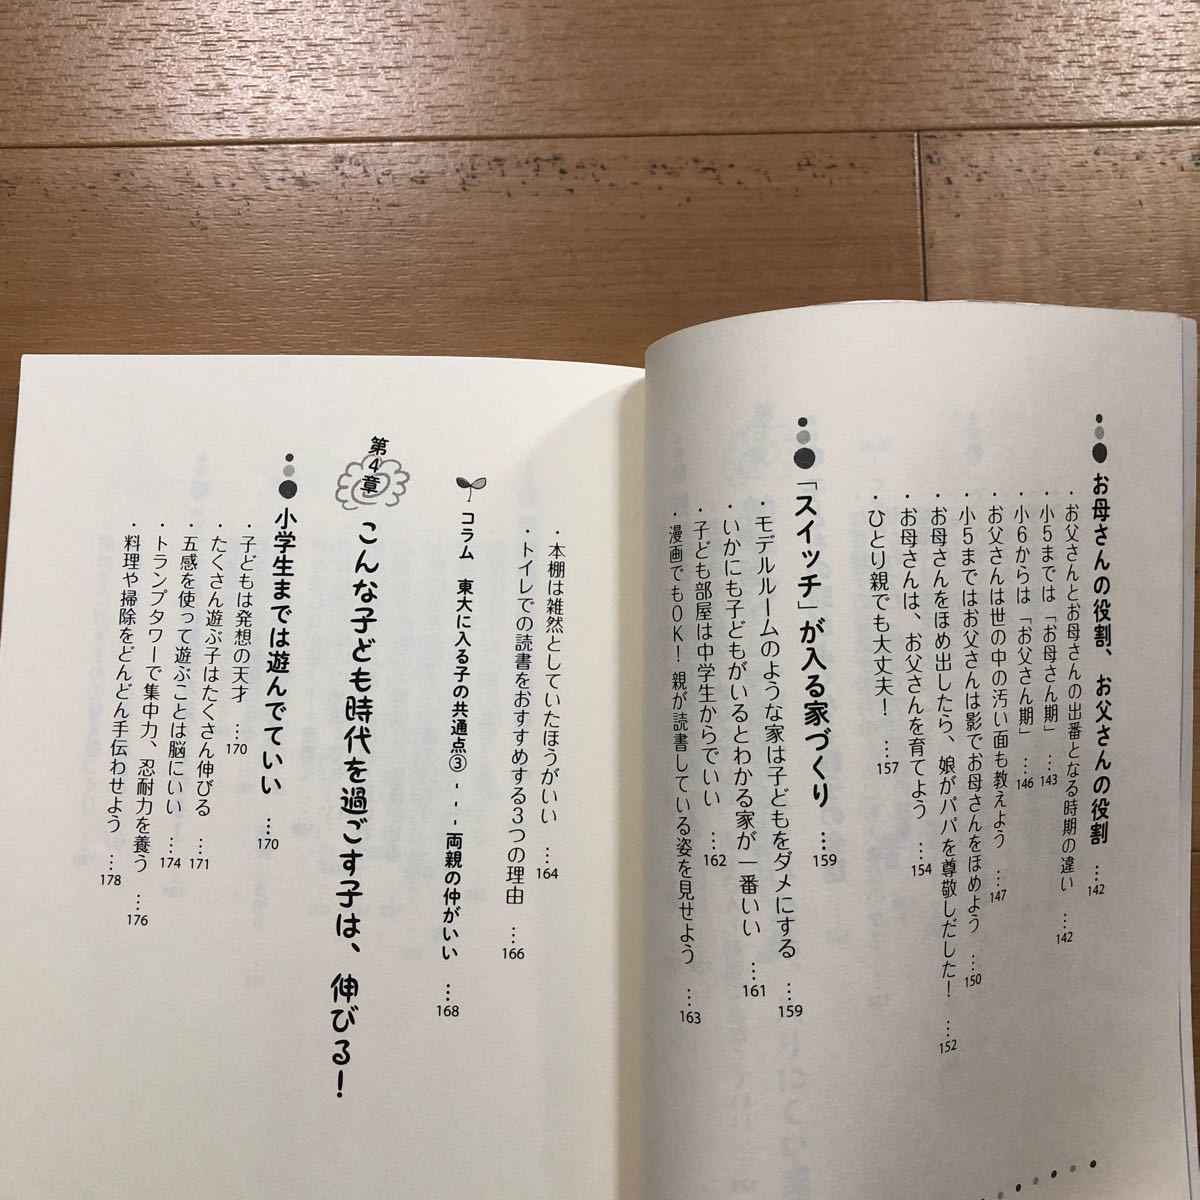 お母さんの役割、お父さんの役割 …142
・お父さんとお母さんの出番となる時期の違い …142
・小5までは「お母さん期」 …143
・小6からは「お父さん期」 …146
・お父さんは世の中の汚い面も教えよう …147
・小5まではお父さんは影でお母さんをほめよう …150
・お母さんをほめ出したら、娘がパパを尊敬しだした! …152
・お母さんは、お父さんを育てよう …154
・ひとり親でも大丈夫! …157
「スイッチ」が入る家づくり …159
・モデルルームのような家は子どもをダメにする …159
・いかにも子どもがいるとわかる家が一番いい …161
・子ども部屋は中学生からでいい …162
・漫画でもOK!親が読書している姿を見せよう …163
・本棚は雑然としていたほうがいい …164
・トイレでの読書をおすすめする3つの理由 …166
コラム 東大に入る子の共通点③ --- 両親の仲がいい …168
第4章 こんな子ども時代を過ごす子は、伸びる!
小学生までは遊んでていい …170
・子どもは発想の天才 …170
・たくさん遊ぶ子はたくさん伸びる …171
・五感を使って遊ぶことは脳にいい …174
・トランプタワーで集中力、忍耐力を養う …176
・料理や掃除をどんどん手伝わせよう …178